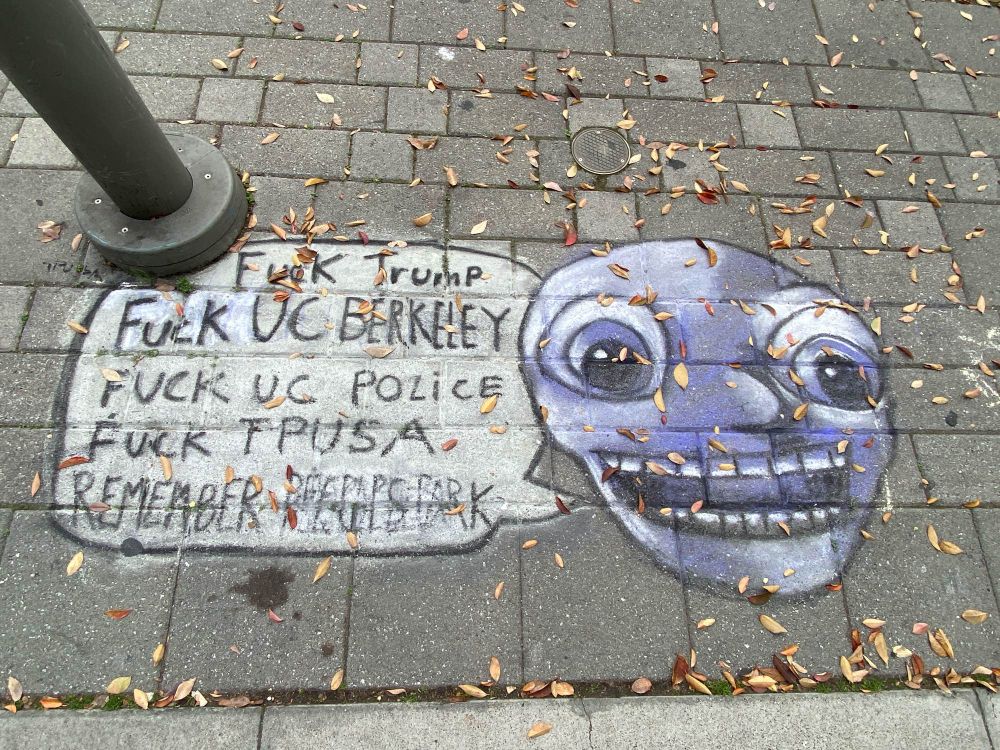 Fuck Trump
Fuck UC BERKELEY
FUCK UC POLICE
Fuck TPUSA
REMEMBER PARK